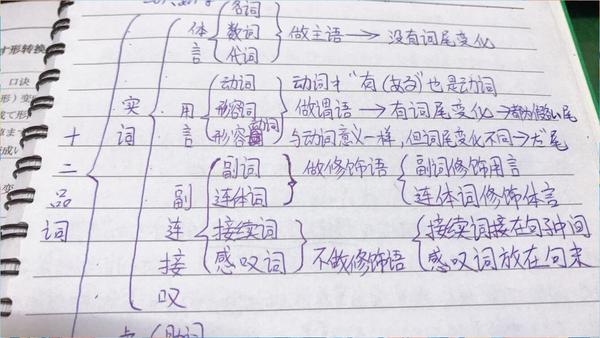 体言 名词 数词 代词 做主语 → 没有词尾变化
用言 动词 形容词 形容动词
动词才"有(ある)"也是动词
做谓语 → 有词尾变化 →
与动词意义一样,但词尾变化不同 → だ尾
十二品词
实词
副 副词 连体词 做修饰语 副词修饰用言 连体词修饰体言
连 接续词
接 感叹词 不做修饰语
接续词接在句子中间
感叹词放在句末
叹
助词
す形转换
口诀